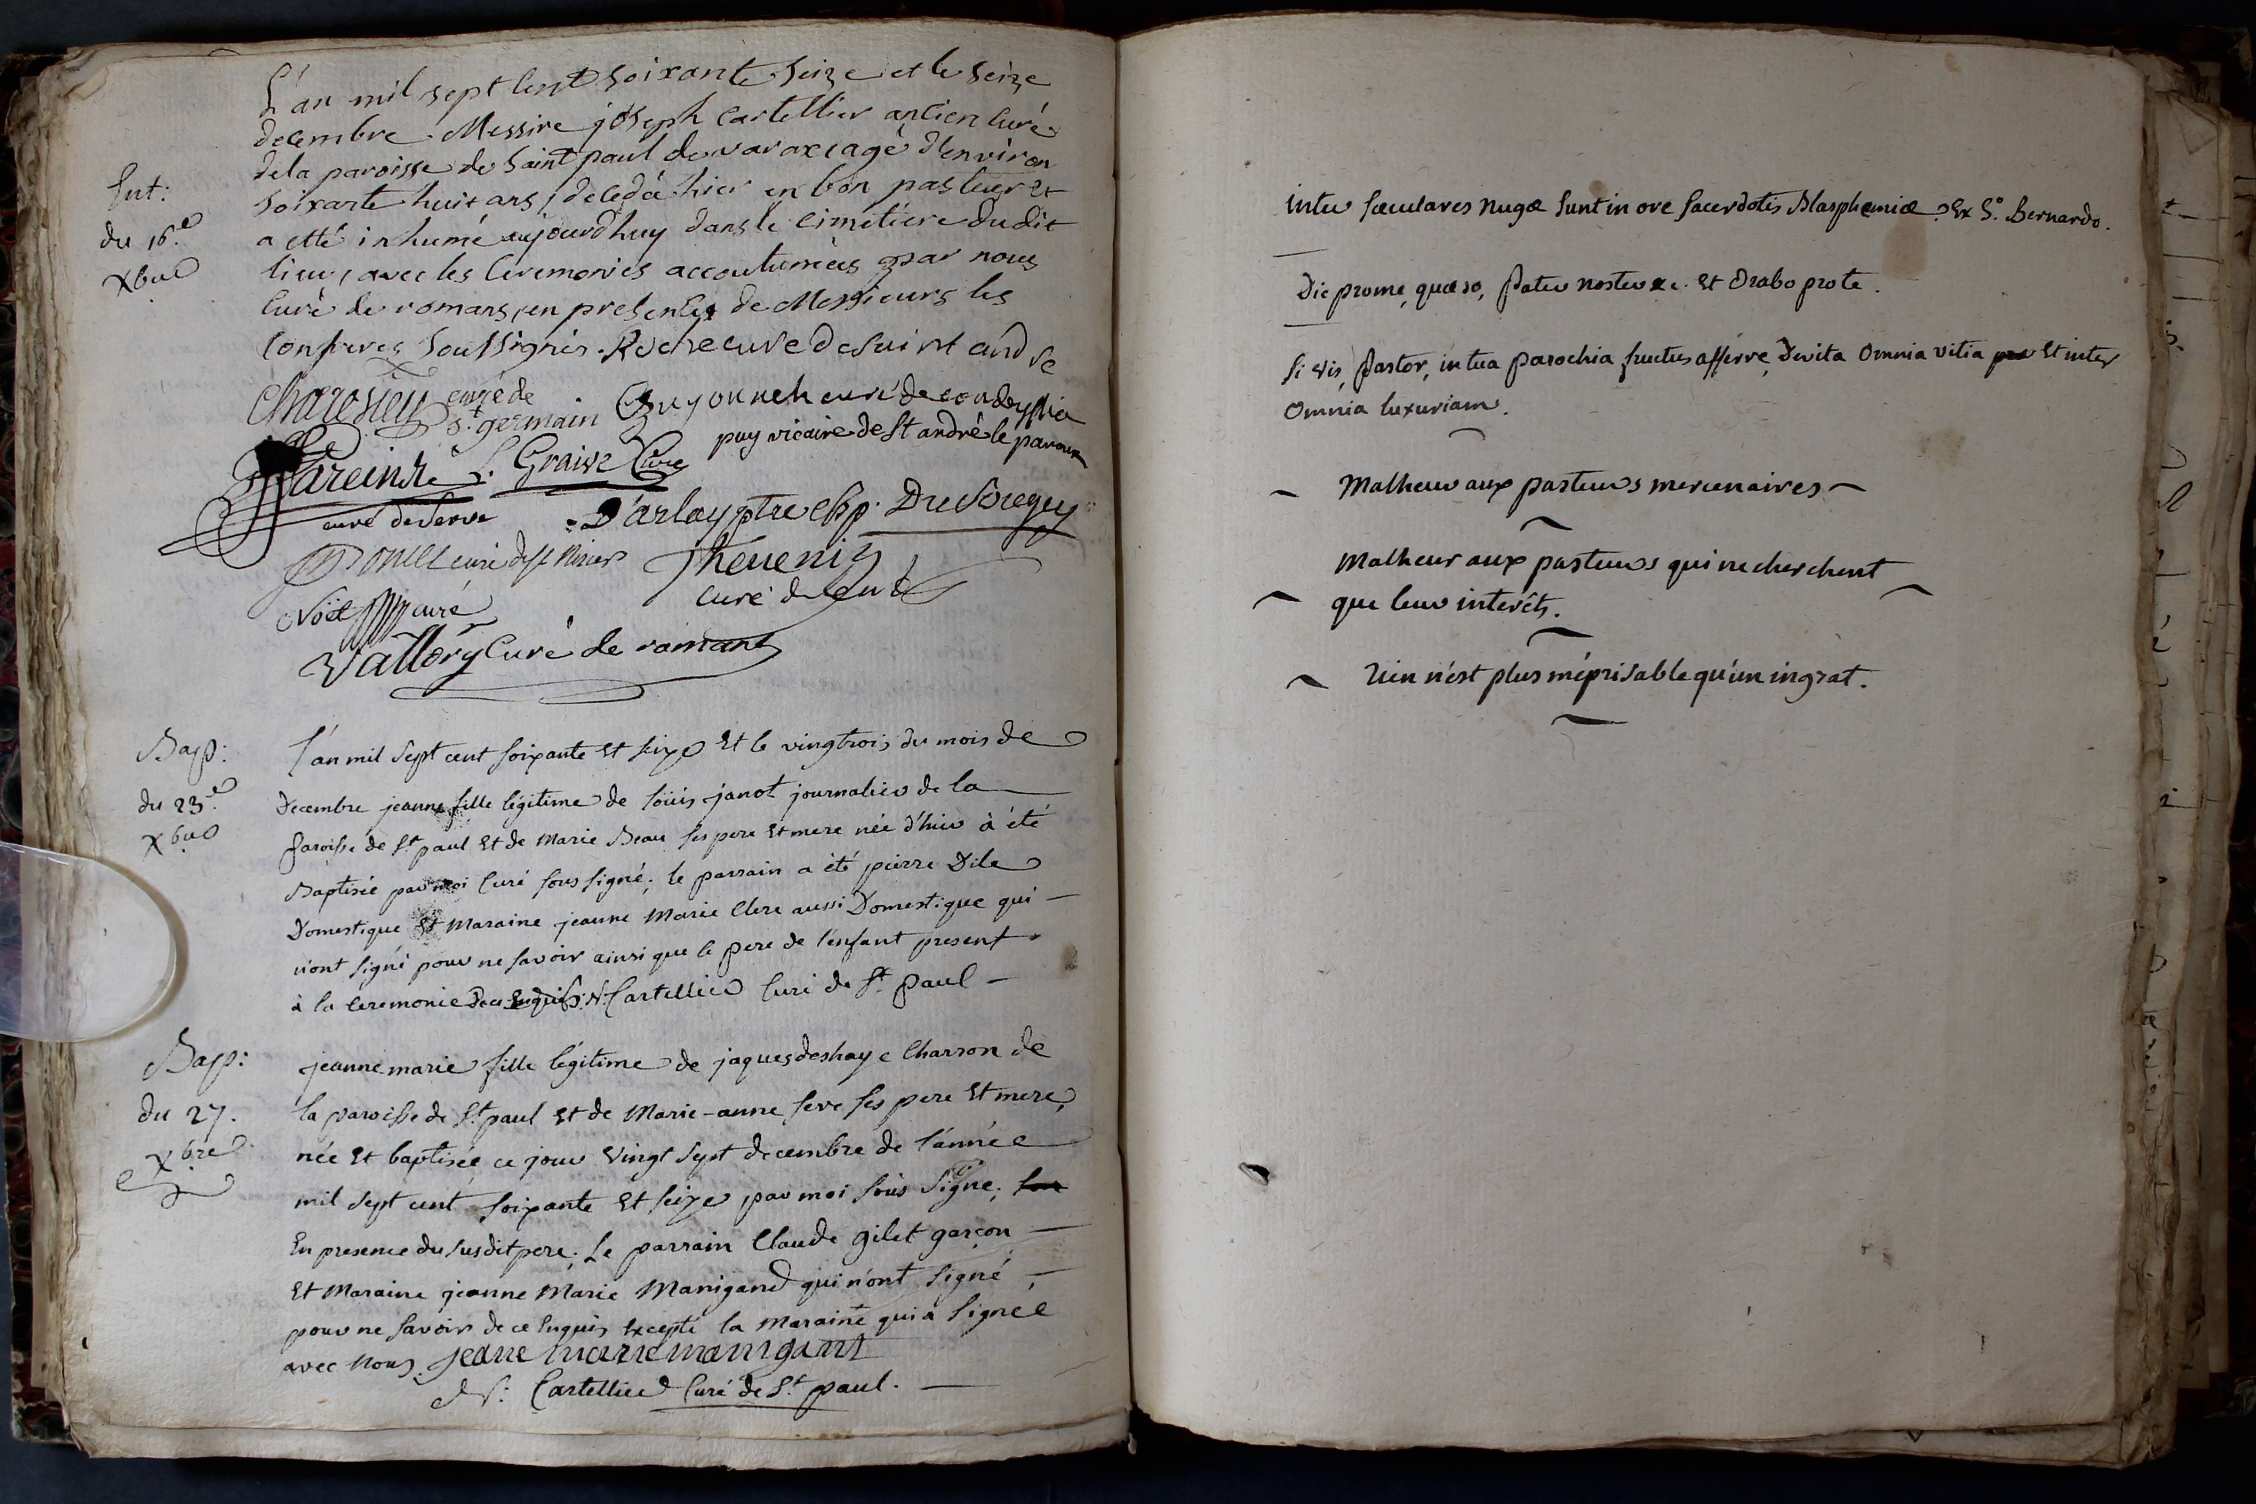 L'an mil sept cent soixante seize et le seize
decembre Messire joseph Cartellier ancien curé
Sut:
de la paroisse de saint paul de varax agé d'environ
soixante huit ans, decedé hier en bon pasteur et
du 16.e
a etté inhumé aujourd'huy dans le cimetiere dudit
Xbre
lieu, avec les ceremonies accoutumées par nous
curé de romans, en presence de Messieurs les
confreres soussignés. Roche curé de saint andre
curé de st. germain Guyonnet curé de condeyssia
puy vicaire de st andré le panoux
Pareint L. Graive Curé
curé de Serve D'arlay ptre chp.
curé de st Nizier Thevenin
Noël curé curé de
Vallory Curé de romans
Bap:
l'an mil sept cent soixante et seize et le vingtrois du mois de
du 23.e
Decembre jeanne fille légitime de loüis janot journalier de la
Xbre
paroisse de St paul et de Marie Beau ses pere et mere née d'hier à été
Baptisée par moi Curé sous signé; le parrain a été pierre Dile
Domestique Et Maraine jeanne Marie Clere aussi Domestique qui
n'ont signé pour ne savoir ainsi que le pere de l'enfant present
à la ceremonie de ce enquis. N. Cartellier Curé de St. paul
Bap:
jeanne marie fille légitime de jaques deshaye Charron de
du 27.
la paroisse de St. paul et de Marie-anne seve ses pere et mere,
Xbre
née et baptisée ce jour vingt sept decembre de l'année
mil sept cent soixante et seize par moi sous signé;
En presence du susdit pere; Le parrain Claude gilet garçon
Et Maraine jeanne Marie Manigand qui n'ont signé,
pour ne savoir de ce enquis excepté la Maraine qui a signée
avec Nous. jeane marie manigant
N: Cartellier Curé de St. paul.
inter sæculares nugæ sunt in ore sacerdotis Blasphemiæ. Ex So. Bernardo.
Dic pro me, quæso, pater noster &c. Et Orabo pro te.
Si vis, Pastor, in tua parochia fructus afferre, Devita Omnia vitia Et inter
Omnia luxuriam.
Malheur aux pasteurs mercenaires
Malheur aux pasteurs qui ne cherchent
que leur interêts.
Rien n'est plus méprisable qu'un ingrat.